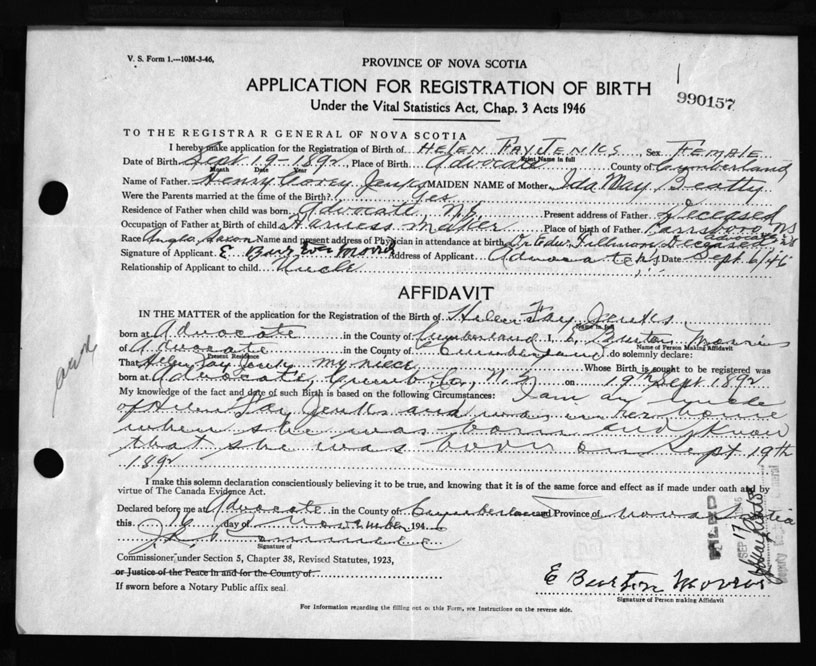 V. S. Form 1.—10M-3-46.
PROVINCE OF NOVA SCOTIA
APPLICATION FOR REGISTRATION OF BIRTH
Under the Vital Statistics Act, Chap. 3 Acts 1946
990157
TO THE REGISTRAR GENERAL OF NOVA SCOTIA
I hereby make application for the Registration of Birth of HELEN FAY JENKS, Sex FEMALE
Print Name in full
Date of Birth Sept 19-1892 Place of Birth Advocate County of Cumberland
Month Date Year
Name of Father Henry Jenks MAIDEN NAME of Mother Ida May Beatty
Were the Parents married at the time of Birth? Yes
Residence of Father when child was born Advocate, N.S. Present address of Father Deceased
Occupation of Father at Birth of child Harness Maker Place of birth of Father Parrsboro, NS
Race Anglo Saxon Name and present address of Physician in attendance at birth Dr. Deceased Advocate NS
Signature of Applicant E Address of Applicant Advocate NS Date Sept 6/46
Relationship of Applicant to child Uncle
AFFIDAVIT
IN THE MATTER of the application for the Registration of Birth of Helen Fay Jenks
Name in full
born at Advocate in the County of Cumberland I, E. Burton Morris
Name of Person Making Affidavit
of Advocate in the County of Cumberland do solemnly declare:
Present Residence
That Helen Fay Jenks my niece Whose Birth is sought to be registered was
born at Advocate, Cumb. Co., N.S. on 19th Sept 1892
My knowledge of the fact and date of such Birth is based on the following Circumstances: I am an uncle
of Helen Fay Jenks and was in her home
when she was born and know
that she was born on Sept 19th
1892
I make this solemn declaration conscientiously believing it to be true, and knowing that it is of the same force and effect as if made under oath and by
virtue of The Canada Evidence Act.
Declared before me at Advocate in the County of Cumberland Province of Nova Scotia
this 16 day of 1946
Signature of
Commissioner under Section 5, Chapter 38, Revised Statutes, 1923,
or Justice of the Peace in and for the County of
If sworn before a Notary Public affix seal
E Burton Morris
Signature of Person making Affidavit
FILED
SEP 17
For Information regarding the filling out of this Form, see Instructions on the reverse side.